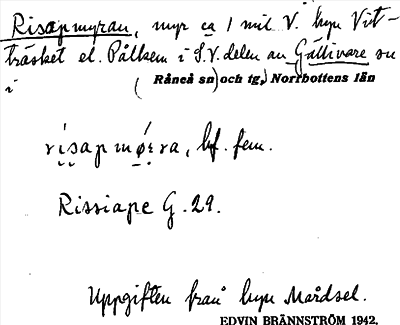 Risapmyran, myr ca 1 mil V. byn Vit-
träsket el. Pålkem i S.V. delen av Gällivare sn
i ( Råneå sn) och tg, Norrbottens län
rísapmǿra, bf. fem.
Rissiape G. 29.
Uppgiften från byn Mårdsel.
EDVIN BRÄNNSTRÖM 1942.